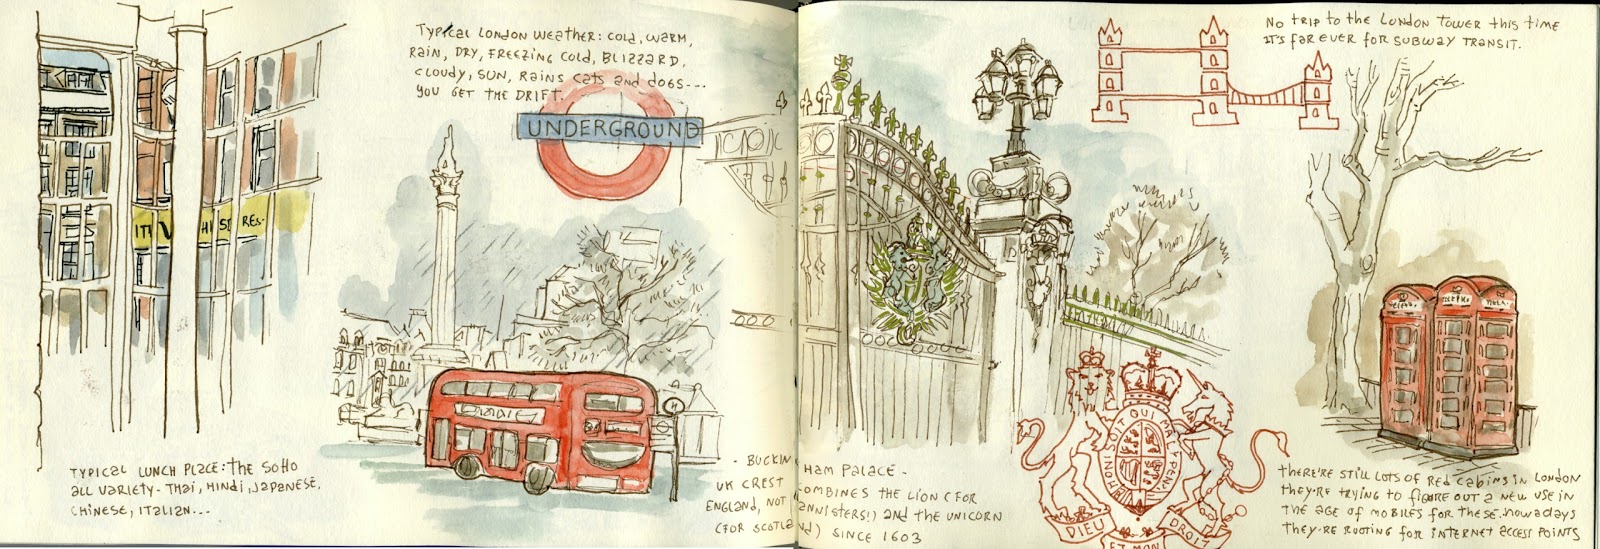 TYPICAL LONDON WEATHER: COLD, WARM,
RAIN, DRY, FREEZING COLD, BLIZZARD,
CLOUDY, SUN, RAINS CATS AND DOGS---
YOU GET THE DRIFT.
UNDERGROUND
RES-
TYPICAL LUNCH PLACE: THE SOHO
ALL VARIETY- THAI, HINDI, JAPANESE,
CHINESE, ITALIAN...
- BUCKIN HAM PALACE -
UK CREST COMBINES THE LION (FOR
ENGLAND, NOT ANNISTERS!) AND THE UNICORN
(FOR SCOTLAND) SINCE 1603
HONI SOIT QUI MAL Y PENSE
DIEU ET MON DROIT
NO TRIP TO THE LONDON TOWER THIS TIME
IT'S FAR EVER FOR SUBWAY TRANSIT.
THERE'RE STILL LOTS OF RED CABINS IN LONDON
THEY'RE TRYING TO FIGURE OUT A NEW USE IN
THE AGE OF MOBILES FOR THESE. NOWADAYS
THEY-RE ROOTING FOR INTERNET ACCESS POINTS